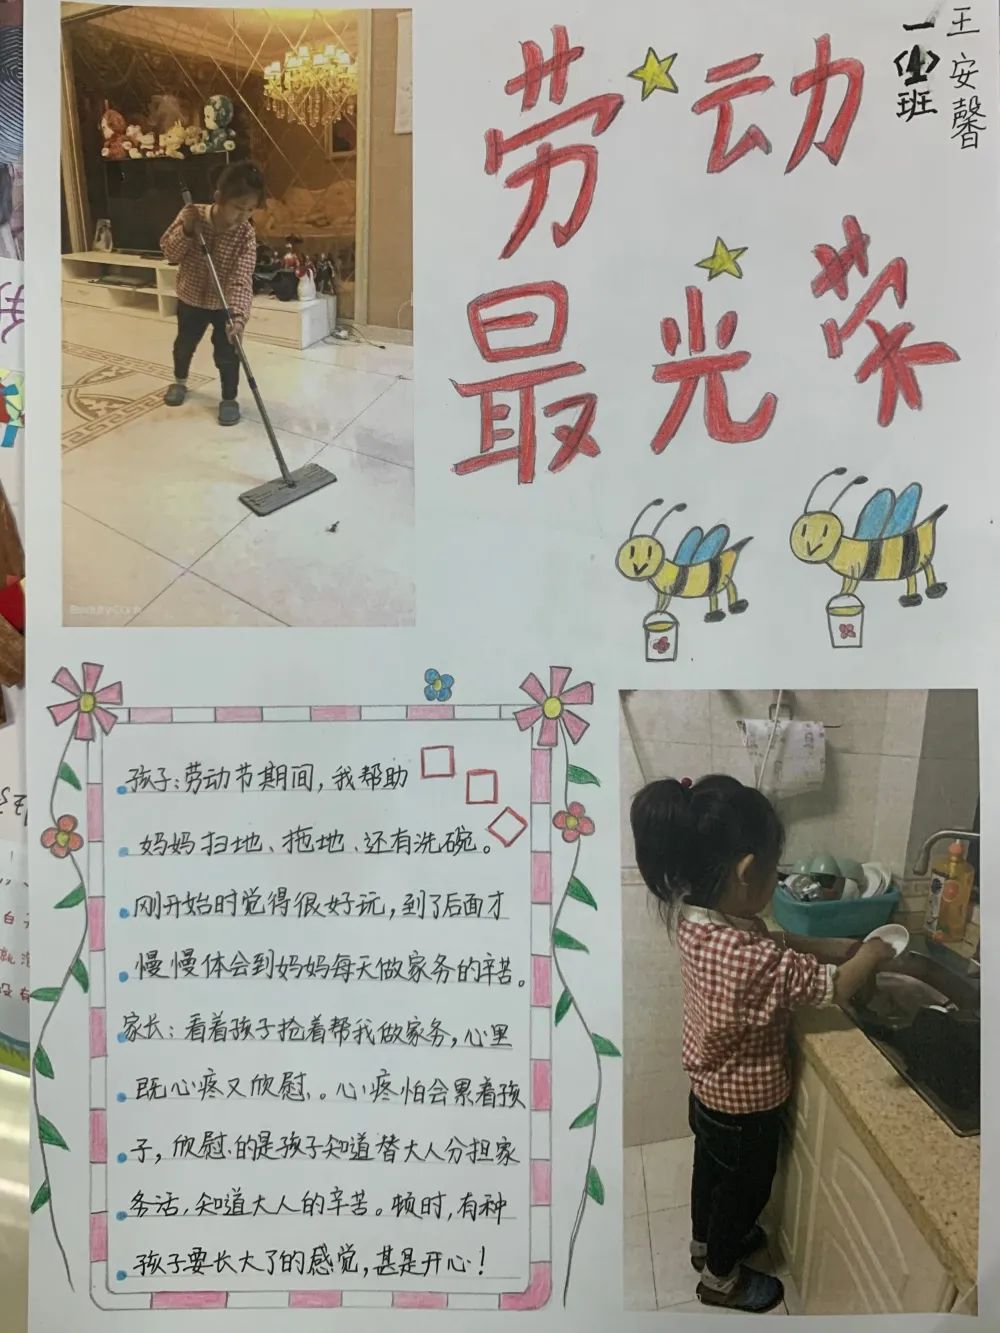 劳动
最光荣
一〈1〉班
王安馨
BeautyCam
孩子:劳动节期间,我帮助
妈妈扫地、拖地、还有洗碗。
刚开始时觉得很好玩,到了后面才
慢慢体会到妈妈每天做家务的辛苦。
家长:看着孩子抢着帮我做家务,心里
既心疼又欣慰。心疼怕会累着孩
子,欣慰的是孩子知道替大人分担家
务活,知道大人的辛苦。顿时,有种
孩子要长大了的感觉,甚是开心!